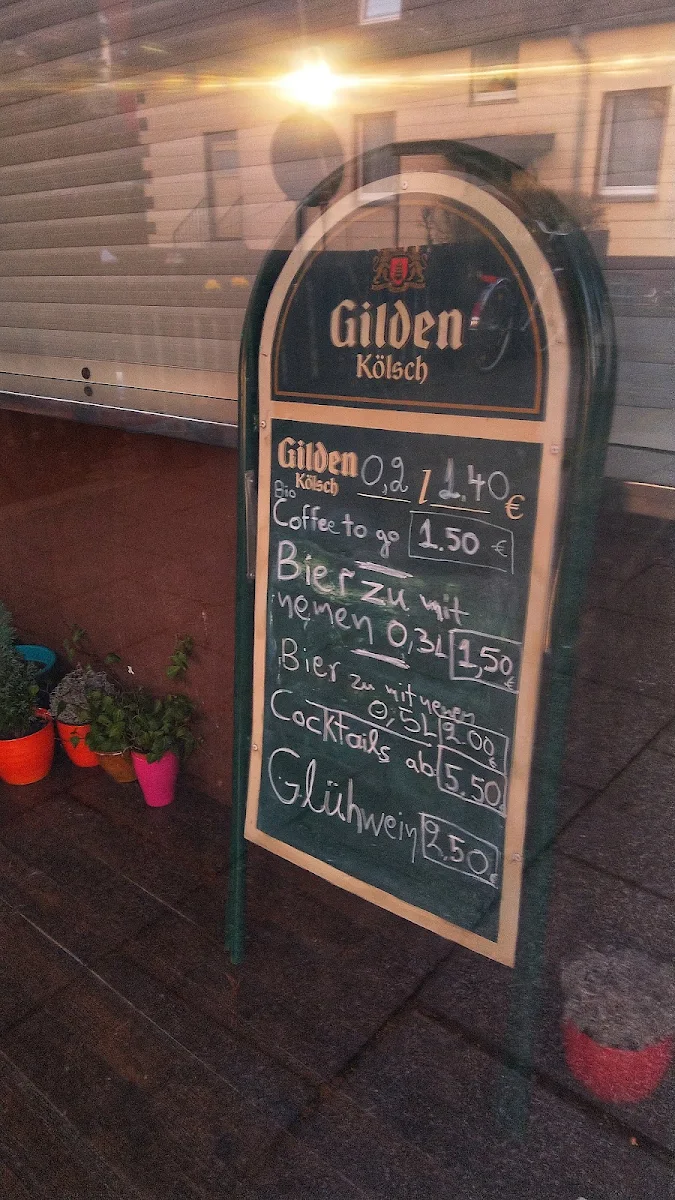 Gilden
Kölsch
Gilden
Kölsch
0,2 / 1.40 €
Bio
Coffee to go 1.50 €
Bier zu mit
nemen 0,3L 1,50 €
Bier zu mit nemen
0,5L 2.00 €
Cocktails ab: 5.50
Glühwein 2,50 €